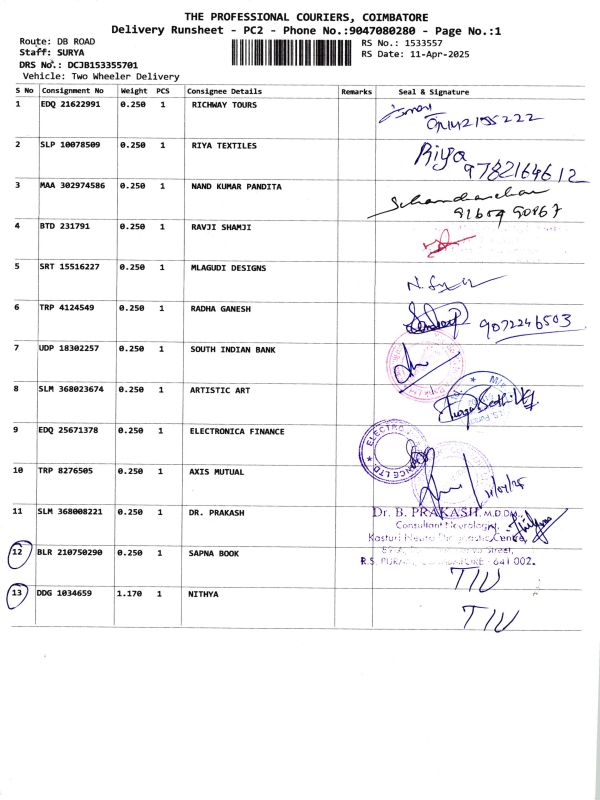 THE PROFESSIONAL COURIERS, COIMBATORE
Delivery Runsheet - PC2 - Phone No.:9047080280 - Page No.:1
Route: DB ROAD
RS No.: 1533557
Staff: SURYA
RS Date: 11-Apr-2025
DRS No.: DCJB153355701
Vehicle: Two Wheeler Delivery
S No Consignment No Weight PCS Consignee Details Remarks Seal & Signature
1 EDQ 21622991 0.250 1 RICHWAY TOURS
2 SLP 10078509 0.250 1 RIYA TEXTILES Riya
9782164612
3 MAA 302974586 0.250 1 NAND KUMAR PANDITA
4 BTD 231791 0.250 1 RAVJI SHAMJI
5 SRT 15516227 0.250 1 MLAGUDI DESIGNS
6 TRP 4124549 0.250 1 RADHA GANESH 9072246503
7 UDP 18302257 0.250 1 SOUTH INDIAN BANK
8 SLM 368023674 0.250 1 ARTISTIC ART
9 EDQ 25671378 0.250 1 ELECTRONICA FINANCE
10 TRP 8276505 0.250 1 AXIS MUTUAL 11/04/25
11 SLM 368008221 0.250 1 DR. PRAKASH Dr. B. PRAKASH, M.D.D.M.,
Consultant Neurologist
Kasturi Neuro Diagnostic Centre,
12 BLR 210750290 0.250 1 SAPNA BOOK
R.S. PURAM, COIMBATORE - 641 002.
TIU
13 DDG 1034659 1.170 1 NITHYA
TIU